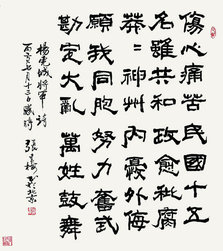 傷心痛苦民國十五
名雖共和政愈秕腐
莽〻神州內憂外侮
願我同胞努力奮武
勘定大亂萬姓鼓舞
楊虎城將軍詩